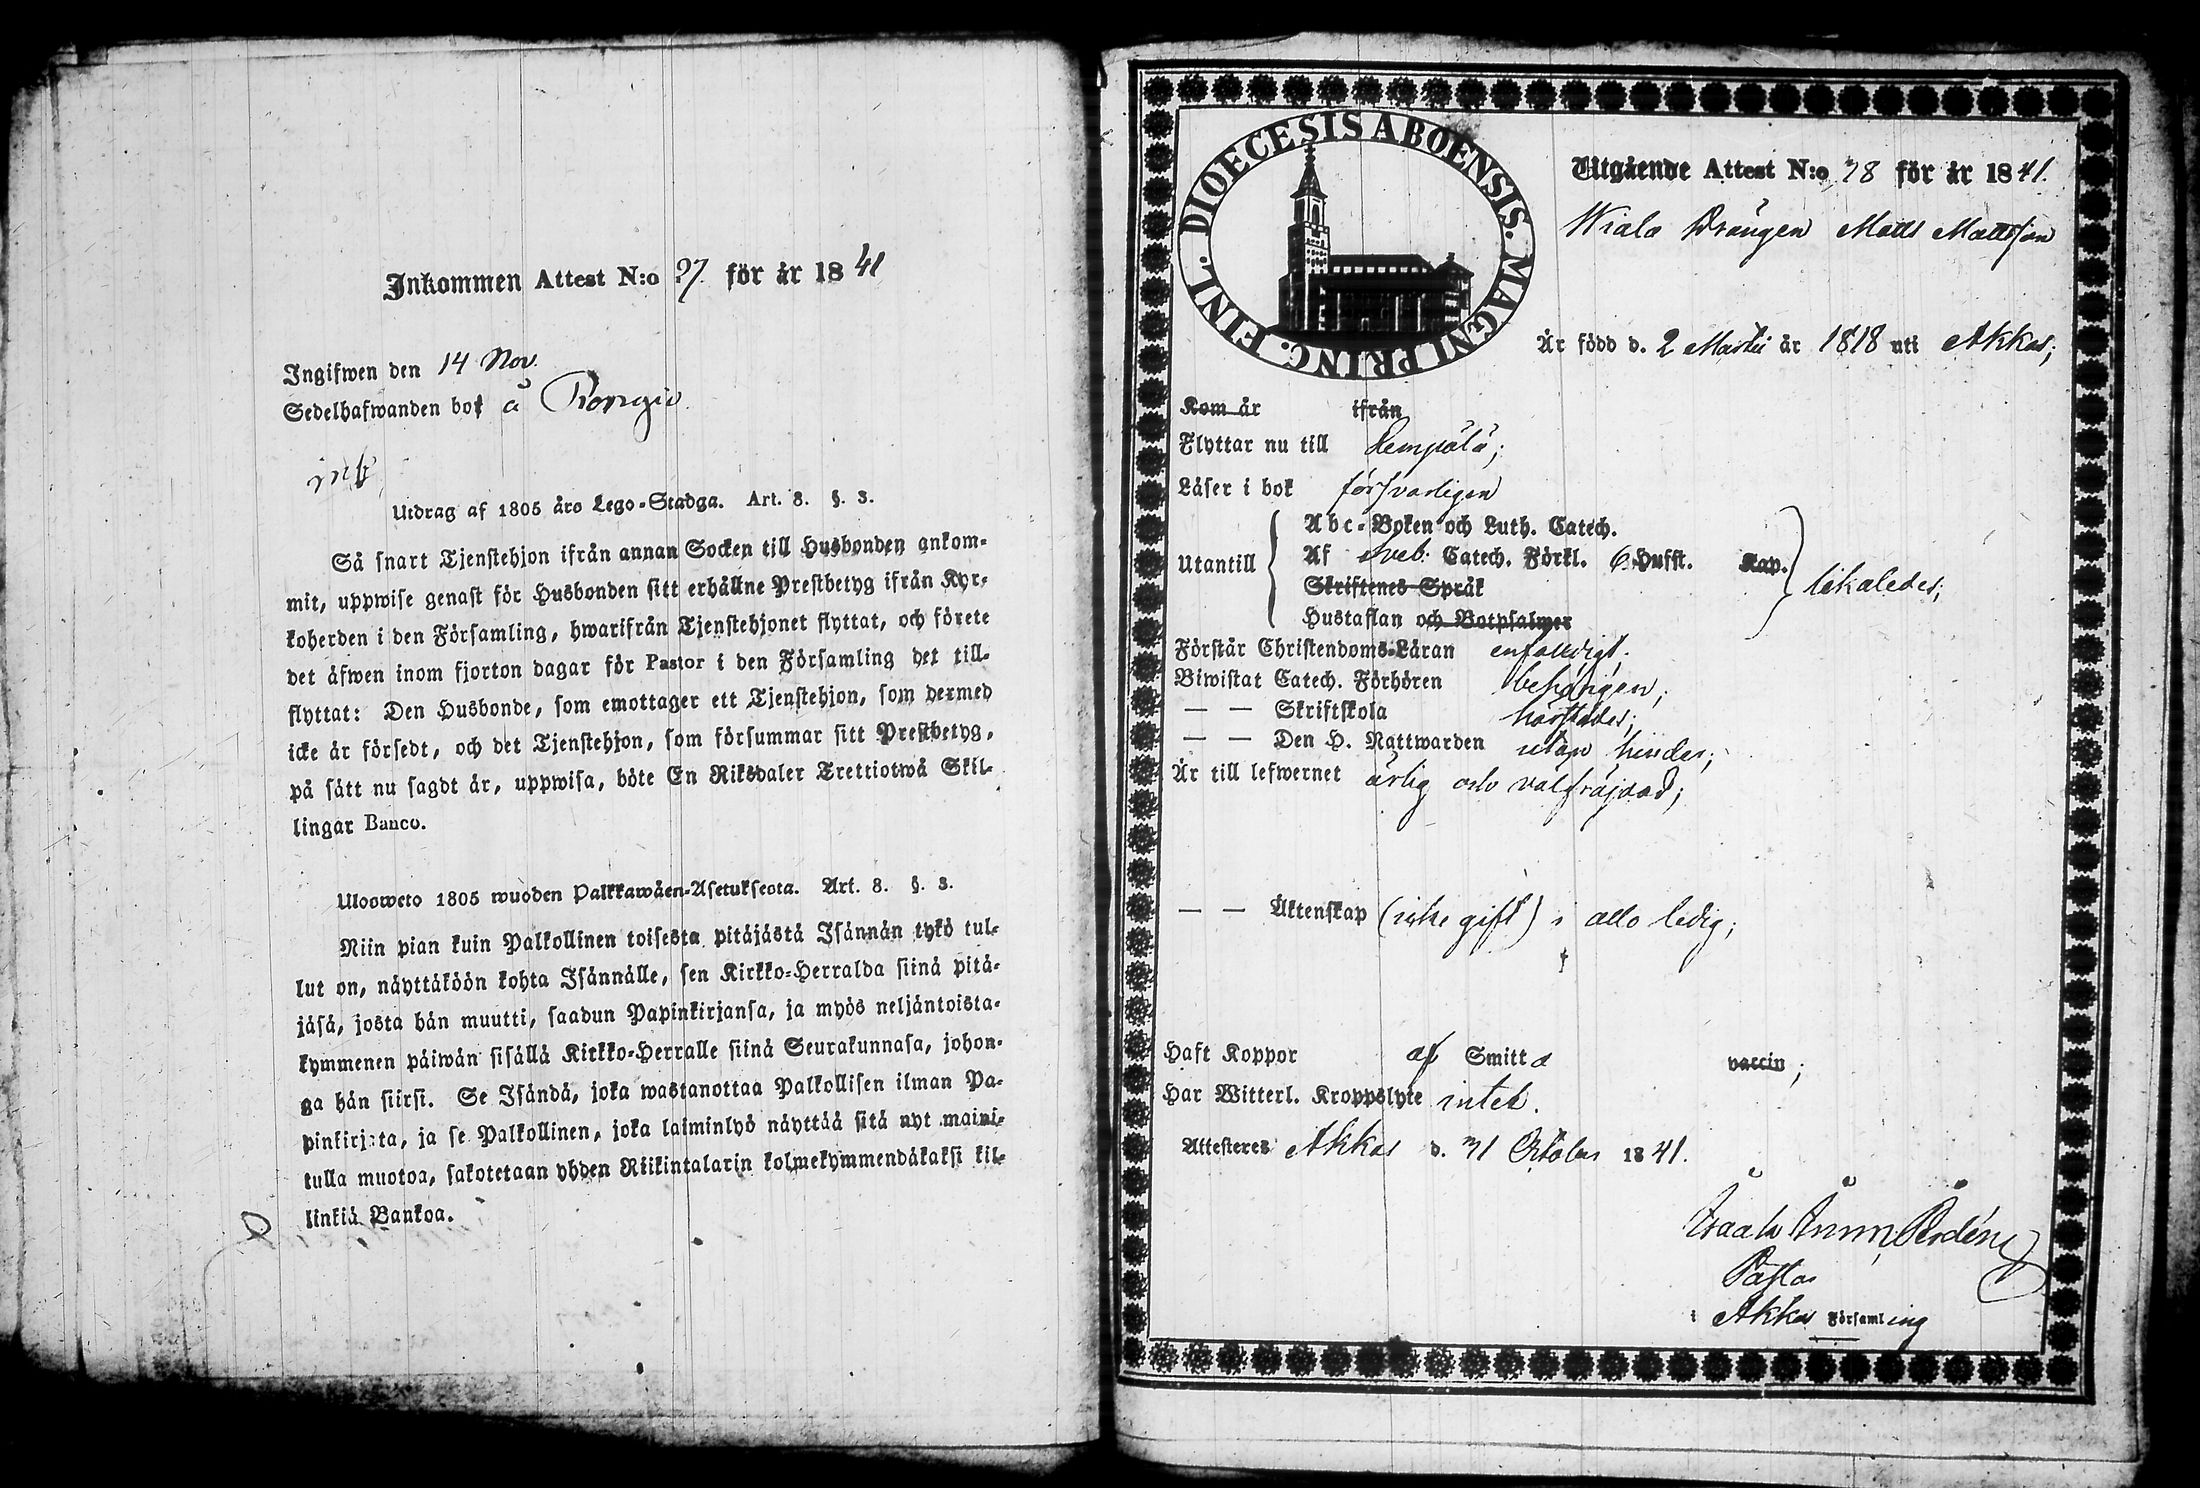 Inkommen Attest N:o 27. för år 1841
Ingifwen den 14 Nov.
Sedelhafwanden bor å
Utdrag af 1805 års Lego-Stadga. Art. 8. §. 3.
Så snart Tjenstehjon ifrån annan Socken till Husbonden ankom-
mit, uppwise genast för Husbonden sitt erhållne Prestbetyg ifrån Kyr-
koherden i den Församling, hwarifrån Tjenstehjonet flyttat, och förete
det äfwen inom fjorton dagar för Pastor i den Församling det till-
flyttat: Den Husbonde, som emottager ett Tjenstehjon, som dermed
icke är försedt, och det Tjenstehjon, som försummar sitt Prestbetyg,
på sätt nu sagdt är, uppwisa, böte En Riksdaler Trettiotwå Skil-
lingar Banco.
Ulosweto 1805 wuoden Palkkawäen-Asetuksesta. Art. 8. §. 3.
Niin pian kuin Palkollinen toisesta pitäjästä Isännän tykö tul-
lut on, näyttäköön kohta Isännälle, sen Kirkko-Herralda siinä pitä-
jäsä, josta hän muutti, saadun Papinkirjansa, ja myös neljäntoista-
kymmenen päiwän sisällä Kirkko-Herralle siinä Seurakunnasa, johon-
ga hän siirsi. Se Isändä, joka wastanottaa Palkollisen ilman Pa-
pinkirjata, ja se Palkollinen, joka laiminlyö näyttää sitä nyt maini-
tulla muotoa, sakotetaan yhden Riikintalarin kolmekymmendäkaksi kil-
linkiä Bankoa.
DIOECESIS ABOENSIS. MAGNI PRINC. FINL.
Utgående Attest N:o 28 för år 1841.
Wiala Drängen Matts Mattsson
Är född d. 2 Martii år 1818 uti Akkas;
Kom år ifrån
Flyttar nu till Lempälä;
Läser i bok försvarligen
Abc-Boken och Luth. Catech.
Utantill Af Sveb. Catech. Förkl. 6 Hufst. Kap. likaledes;
Skriftenes Språk
Hustaflan och Botpsalmer
Förstår Christendoms-Läran enfaldigt.
Biwistat Catech. Förhören behörigen;
— — Skriftskola härstädes;
— — Den H. Nattwarden utan hinder;
Är till lefwernet ärlig och välfräjdad;
— — Äktenskap (icke gift) i allo ledig;
Haft Koppor af Smitta vaccin;
Har Witterl. Kroppslyte intet.
Attesteres Akkas d. 31 October 1841.
Pastor
i Akkas Församling